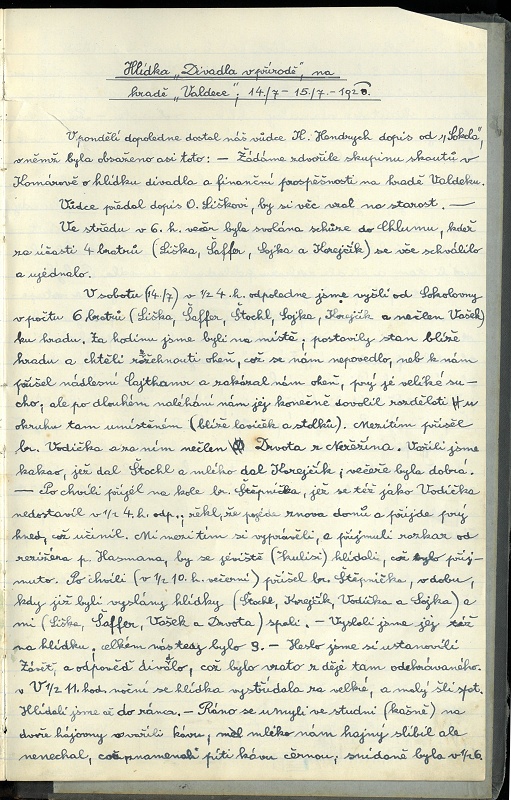 Hlídka „Divadla v přírodě", na
hradě „Valdece"; 14./7 – 15./7. – 1928.
V pondělí dopoledne dostal náš vůdce K. Hendrych dopis od „Sokola",
v němž byla obsaženo asi toto: – Žádáme zdvořile skupinu skautů v
Komárově o hlídku divadla a finanční prospěšnosti na hradě Valdeku.
Vůdce předal dopis O. Liškovi, by si věc vzal na starost. —
Ve středu v 6. h. večer byla svolána schůze do Chlumu, kdež
za účasti 4 bratrů (Liška, Šaffer, Sojka a Korejčík) se vše schválilo
a ujednalo.
V sobotu (14./7) v 1/2 4. h. odpoledne jsme vyšli od Sokolovny
v počtu 6 bratrů (Liška, Šaffer, Štochl, Sojka, Korejčík a nečlen Vašek)
ku hradu. Za hodinu jsme byli na místě; postavily stan blíže
hradu a chtěli rozžehnouti oheň, což se nám nepovedlo, neb k nám
přišel nadlesní Cajthaml a zakázal nám oheň, prý je veliké su-
cho; ale po dlouhém naléhání nám jej konečně dovolil rozdělati u
okruhu tam umístěném (blíže laviček a stolků). Mezitím přišel
br. Vodička a za ním nečlen Drvota z Neřežína. Vařili jsme
kakao, jež dal Štochl a mlíko dal Korejčík; večeře byla dobrá.
— Po chvíli přijel na kole br. Štěpnička, jež se též jako Vodička
nedostavil v 1/2 4. h. odp.; řekl, že pojede znova domů a přijde prý
hned, což učinil. Mi mezitím si vyprávěli, a přijmuli rozkaz od
režiséra p. Hasmana, by se jeviště (kulisi) hlídali, což bylo přij-
muto. Po chvíli (v 1/2 10. h. večerní) přišel br. Štěpnička, v dobu,
kdy již byli vyslány hlídky (Štochl, Korejčík, Vodička a Sojka) a
mi (Liška, Šaffer, Vašek a Drvota) spali. – Vyslali jsme jej též
na hlídku; celkem nás tedy bylo 9. – Heslo jsme si ustanovili
Záviš, a odpověď divadlo, což bylo vzato z děje tam odehrávaného.
v V 1/2 11. hod. noční se hlídka vystřídala za velké, a malý šli spat.
Hlídali jsme až do rána. – Ráno se umyli ve studni (kašně) na
dvoře hájovny uvařili kávu, mlíko nám hajný slíbil ale
nenechal, což znamenalo píti kávu černou; snídaně byla v 1/2 6.